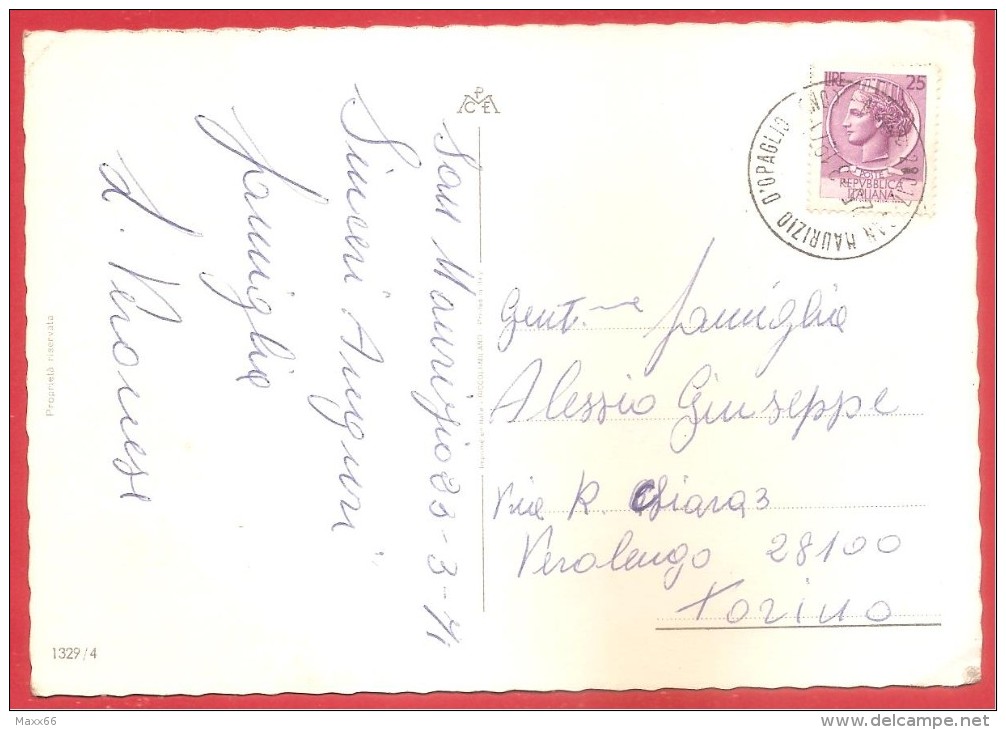 San Maurizio 23-3-71
Sinceri Auguri
famiglia
A. Veronese
PCE
LIRE 25
POSTE
REPVBBLICA
ITALIANA
SAN MAURIZIO D'OPAGLIO
Gent.me famiglia
Alessio Giuseppe
Via R. Chiara 3
Verolengo 28100
Torino
Proprietà riservata
1329/4
Maxx66
www.delcampe.net